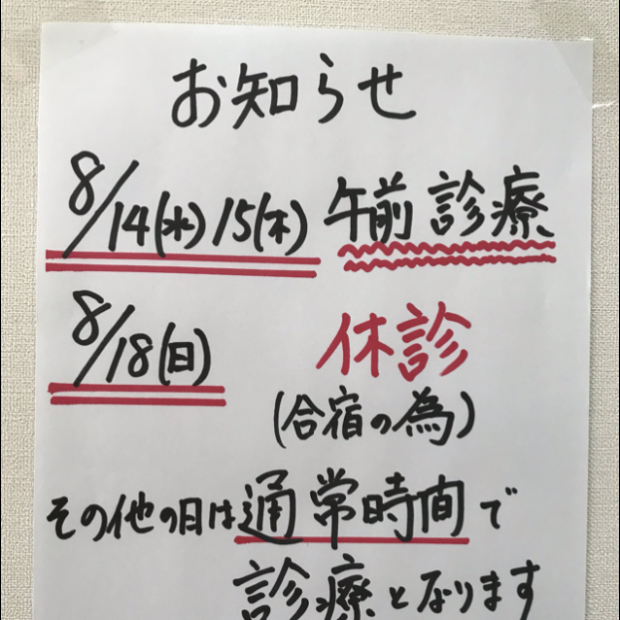 お知らせ
8/14(水)15(木) 午前診療
8/18(日) 休診
(合宿の為)
その他の日は通常時間で
診療となります